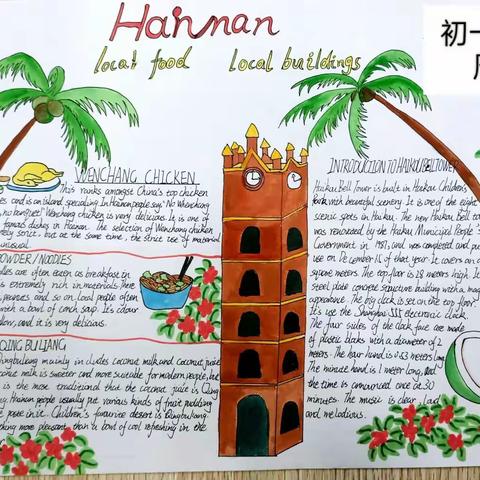 Hainan
local food
local buildings
初一
WENCHANG CHICKEN
This ranks amongst China's top chicken
es and is an island specialing. In Hainan people say "No Wenchang
no banquet". Wenchang chicken is very delicious. It is one of
famous dishes in Hainan. The selection of Wenchang chicken
strict, but at the same time, the strict use of material
unusual.
POWDER/NOODLES
dles are often eaten as breakfast in
is extremely rich in materials. There
peanuts and so on. Local people often
with a bowl of conch soup. It's colour
and it is very delicious.
QING BULIANG
Qingbuliang mainly includes coconut milk and coconut juice
milk is sweeter and more suitable for modern people, but
is the most traditional that the coconut juice is Qing
Hainan people usually put various kinds of fruit pudding
in it. Children's favourite desert is Qingbuliang.
thing more pleasant than a bowl of cool refreshing in the
INTRODUCTION TO HAIKOU BELL TOWER
Haikou Bell Tower is built in Haikou Children's
Park with beautiful scenery. It is one of the eight
scenic spots in Haikou. The new Haikou Bell to
was renovated by the Haikou Municipal People's
Government in 1987, and was completed and put
use on December 14 of that year. It covers an
square meters. The top floor is 28 meters high. It
steel plate concrete structure building with a
appearance. The big clock is set on the top floor.
It's use the Shanghai 555 electronic clock.
The four sides of the clock face are made
of plastic blacks with a diameter of 2
meters. The hour hand is 0.83 meters long.
The minute hand is 1 meter long, and
the time is announced once at 30
minutes. The music is clear, loud
and melodious.